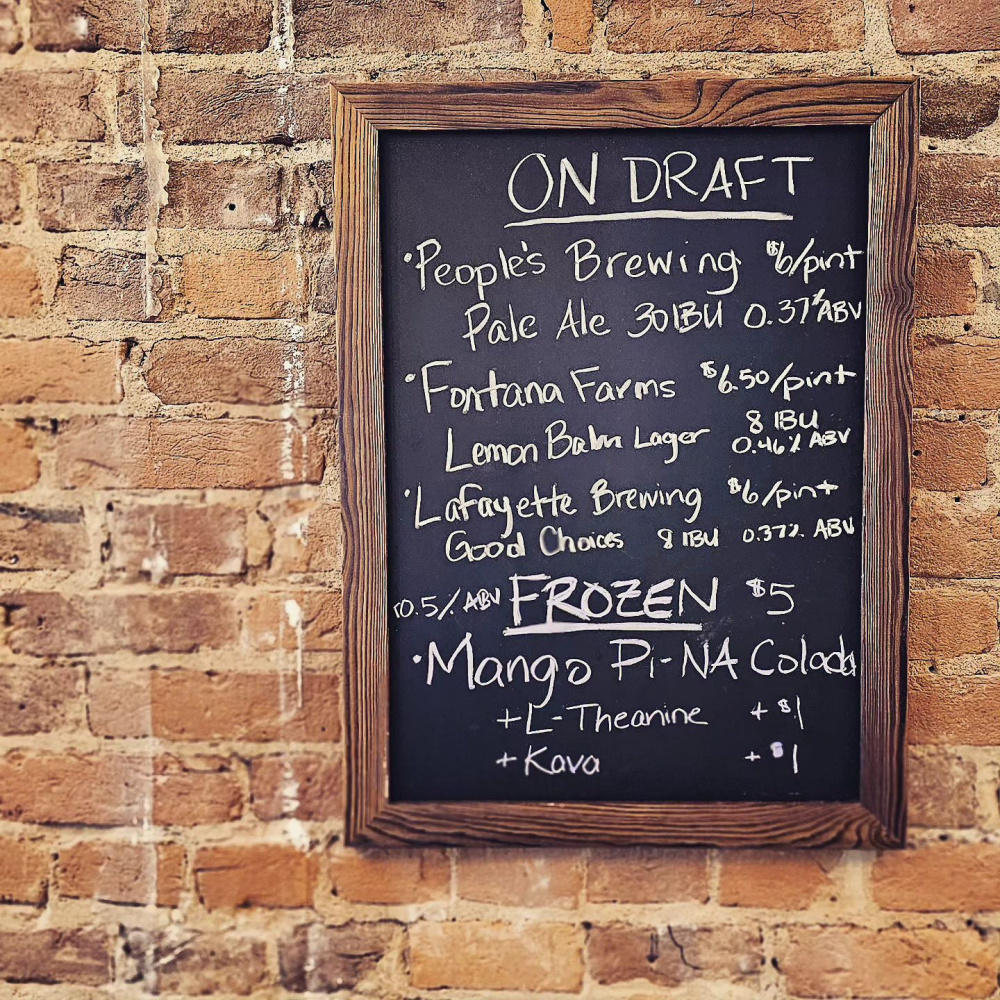 ON DRAFT
•People's Brewing $6/pint
Pale Ale 30 IBU 0.37% ABV
•Fontana Farms $6.50/pint
Lemon Balm Lager 8 IBU
0.46% ABV
•Lafayette Brewing $6/pint
Good Choices 8 IBU 0.37% ABV
<0.5% ABV FROZEN $5
•Mango Pi-NA Colada
+L-Theanine +$1
+Kava +$1